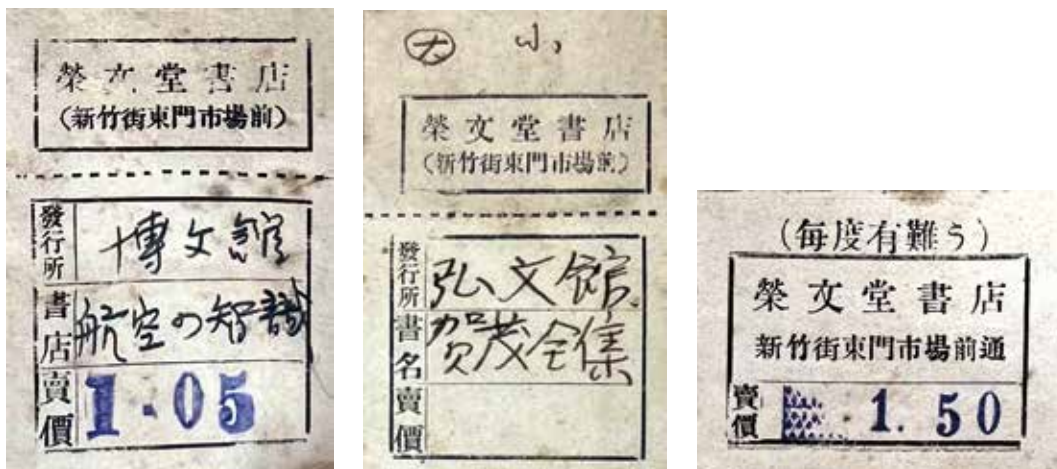 榮文堂書店
(新竹街東門市場前)
發行所 博文館
書店 航空の智識
賣價 1.05
大 小
榮文堂書店
(新竹街東門市場前)
發行所 弘文館
書名 賀茂全集
賣價
(每度有難う)
榮文堂書店
新竹街東門市場前通
賣價 1.50